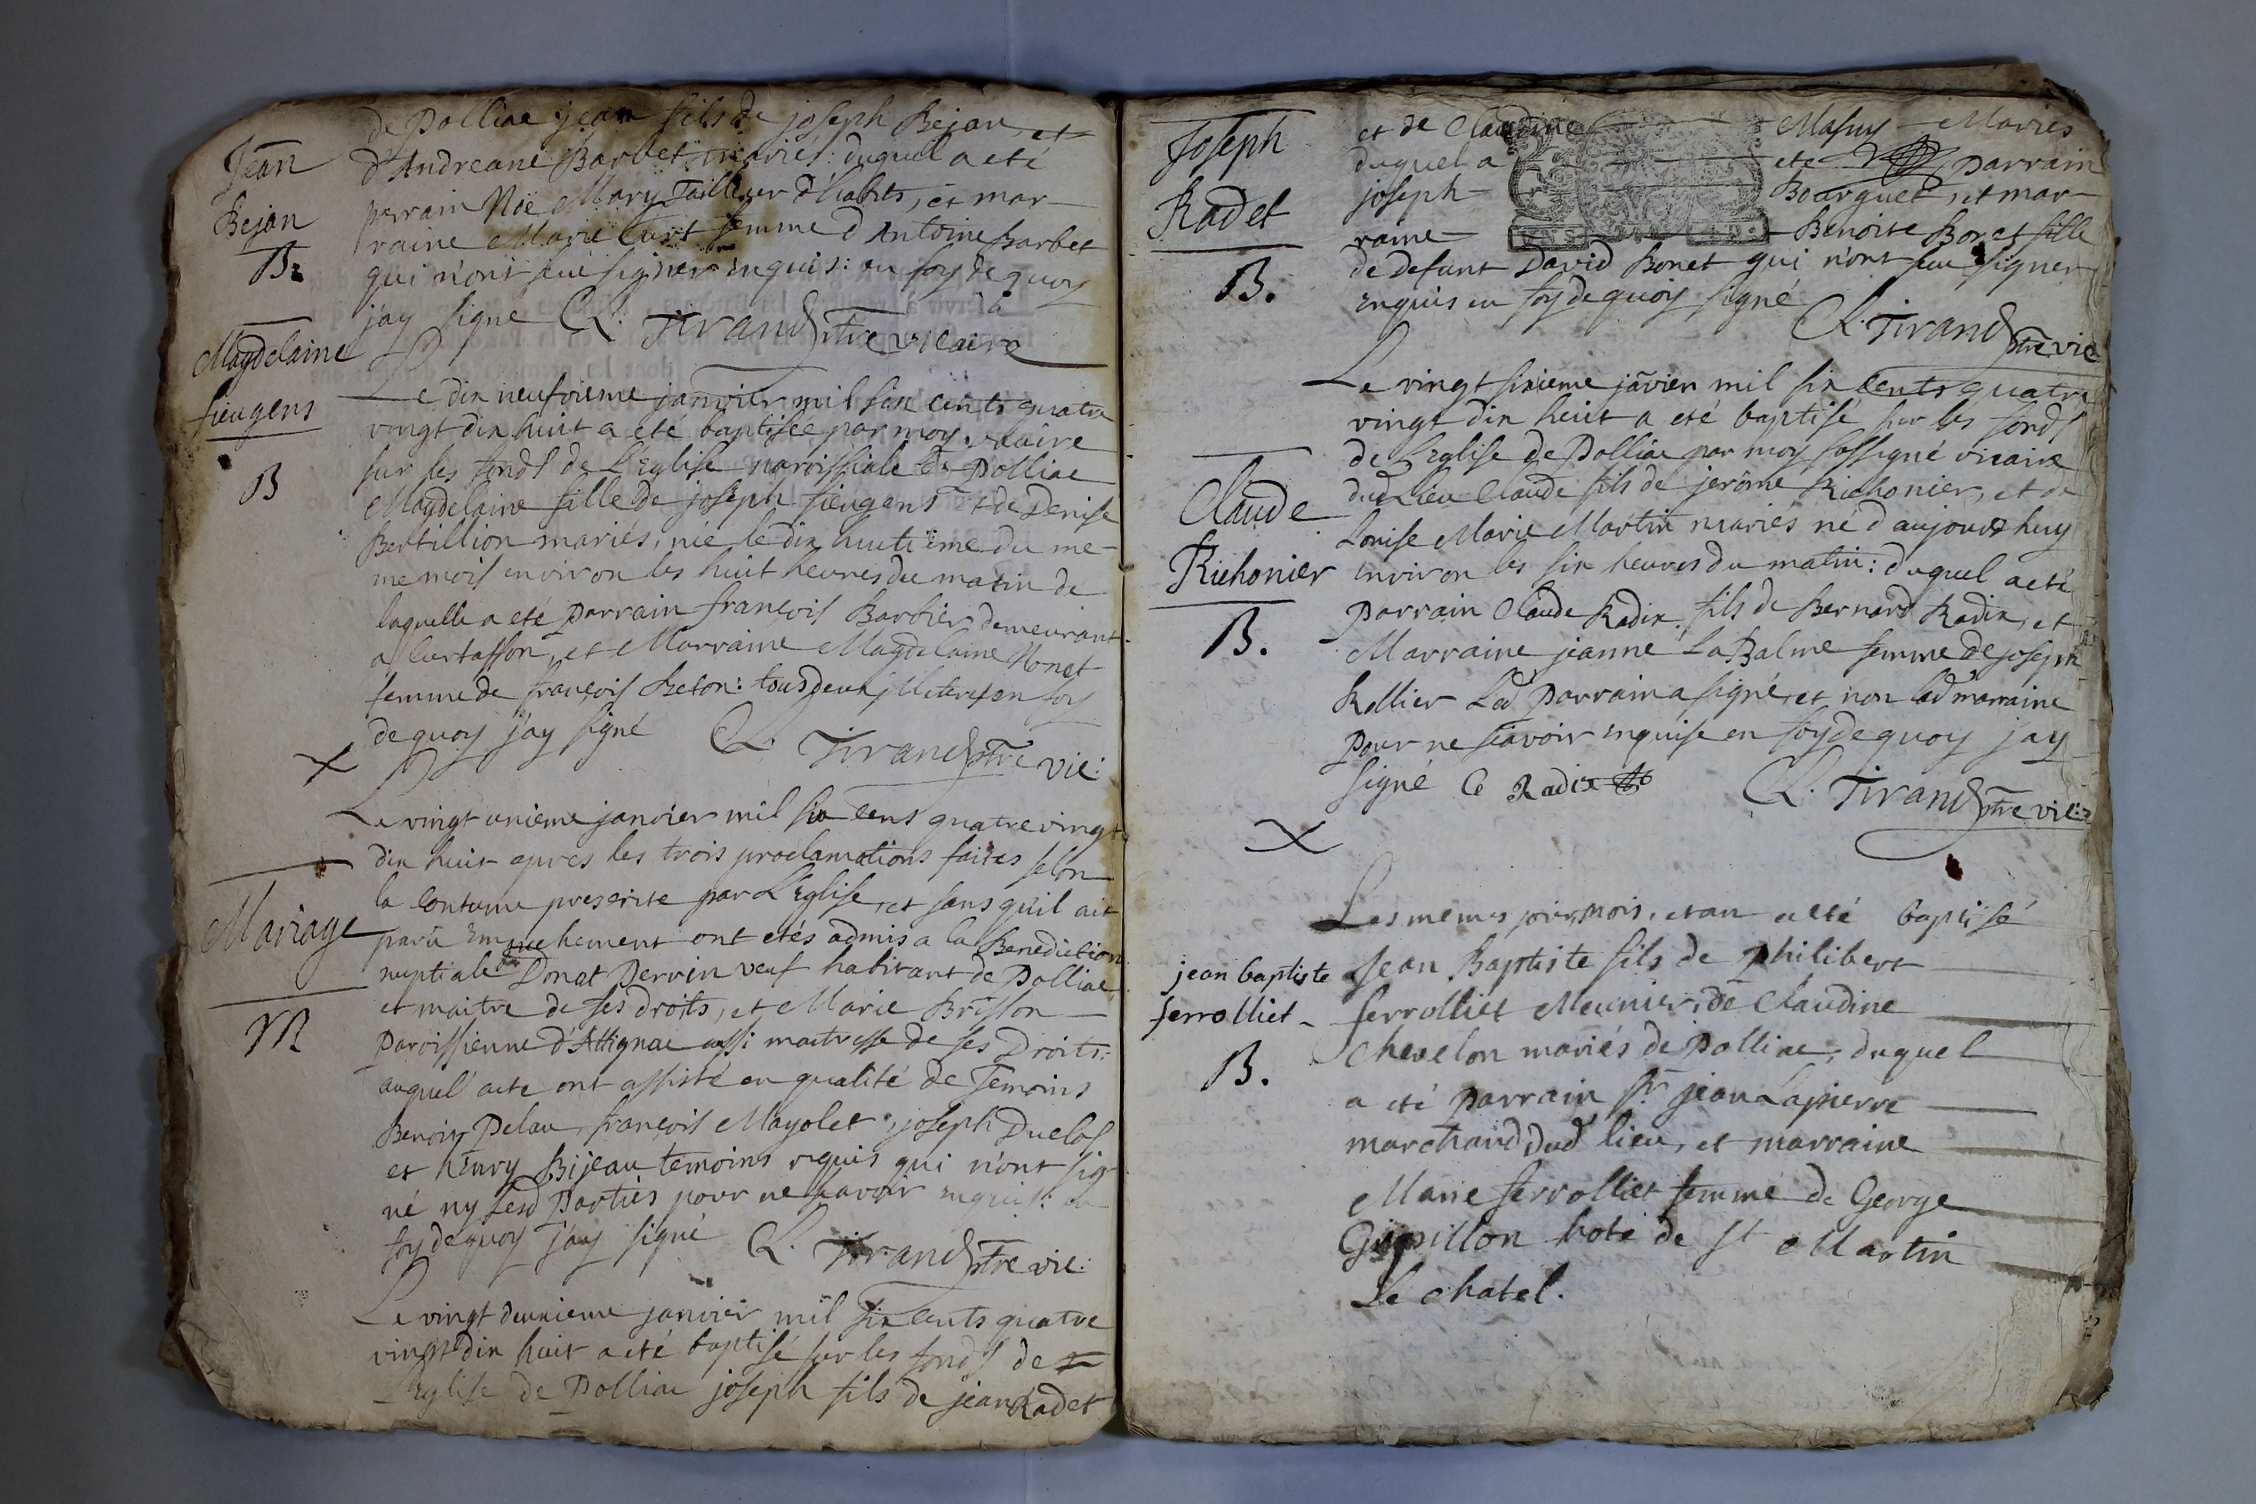 de Polliac jean fils de joseph Bejan et
Jean
d'Andreane Barbet mariés: duquel a eté
parrain Noë Mary Tailleur d'habits, et mar-
Bejan
raine Marie Curt femme d'Antoine Barbet
B.
qui n'ont sceu signer inquis: en foy de quoy
j'ay signé C. Tirand ptre vicaire
Magdelaine
Le dix neufvieme janvier mil six cents quatre
fieugens
vingt dix huit a eté baptisée par moy vicaire
sur les fonds de L'Eglise paroissiale de Polliac
B
Magdelaine fille de joseph fieugens et de Denise
Bertillion mariés, née le dix huitieme du me-
me mois environ les huit heures du matin de
laquelle a eté parrain françois Barbier demeurant
a Curtasson, et Marraine Magdelaine Monet
femme de françois Breton: tous deux jlliteres en foy
de quoy j'ay signé C. Tirand ptre vic:
Le vingt unieme janvier mil six cens quatre vingt
dix huit apres les trois proclamations faites selon
la Coutume prescrite par L'Eglise, et sans qu'il ait
Mariage
parû Empechement ont etés admis a la Benediction
nuptiale Donat Perrin veuf habitant de Polliac
et maitre de ses droits, et Marie Brisson
M
Paroissienne d'Attignac aussi maitresse de ses Droits:
auquel acte ont assisté en qualité de Temoins
Benoit Pelau, françois Mayolet, joseph Duclos
et henry Bijeau temoins requis qui n'ont sig-
né ny Lesd Parties pour ne sçavoir inquis: en
foy de quoy j'ay signé C. Tirand ptre vic:
Le vingt deuxieme janvier mil six cents quatre
vingt dix huit a eté baptisé sur les fonds de
L'Eglise de Polliac joseph fils de jean Radet
Joseph
et de Claudine Masuy Mariés
duquel a eté parrain
Radet
joseph Bourguet, et mar-
raine Benoite Bonet fille
de defunt David Bonet qui n'ont sceu signer
B.
enquis en foy de quoy signé
C. Tirand ptre vic
Le vingt sixieme jãvier mil six cents quatre
vingt dix heuit a eté baptisé sur les fonds
de L'Eglise de Polliac par moy soussigné vicaire
Claude
dud Lieu Claude fils de jerôme Richonier, et de
Louise Marie Martin mariés né d'aujourd huy
Richonier
environ les six heures du matin: duquel a eté
Parrain Claude Radix, fils de Bernard Radix, et
B.
Marraine jeanne La Balme femme de joseph
Rollier Led Parrain a signé, et non lad marraine
Pour ne sçavoir enquise en foy de quoy j'ay
signé C Radix C. Tirand ptre vic:
Les memes jour, mois, et an a eté baptisé
jean baptiste
Jean Baptiste fils de Philibert
ferrolliet
ferrolliet Meunier, de Claudine
Chevelon mariés de Polliac, duquel
B.
a eté parrain sr jean Lapierre
marchand dud lieu, et marraine
Marie ferrolliet femme de George
Gupillon hote de st Martin
Le chatel.